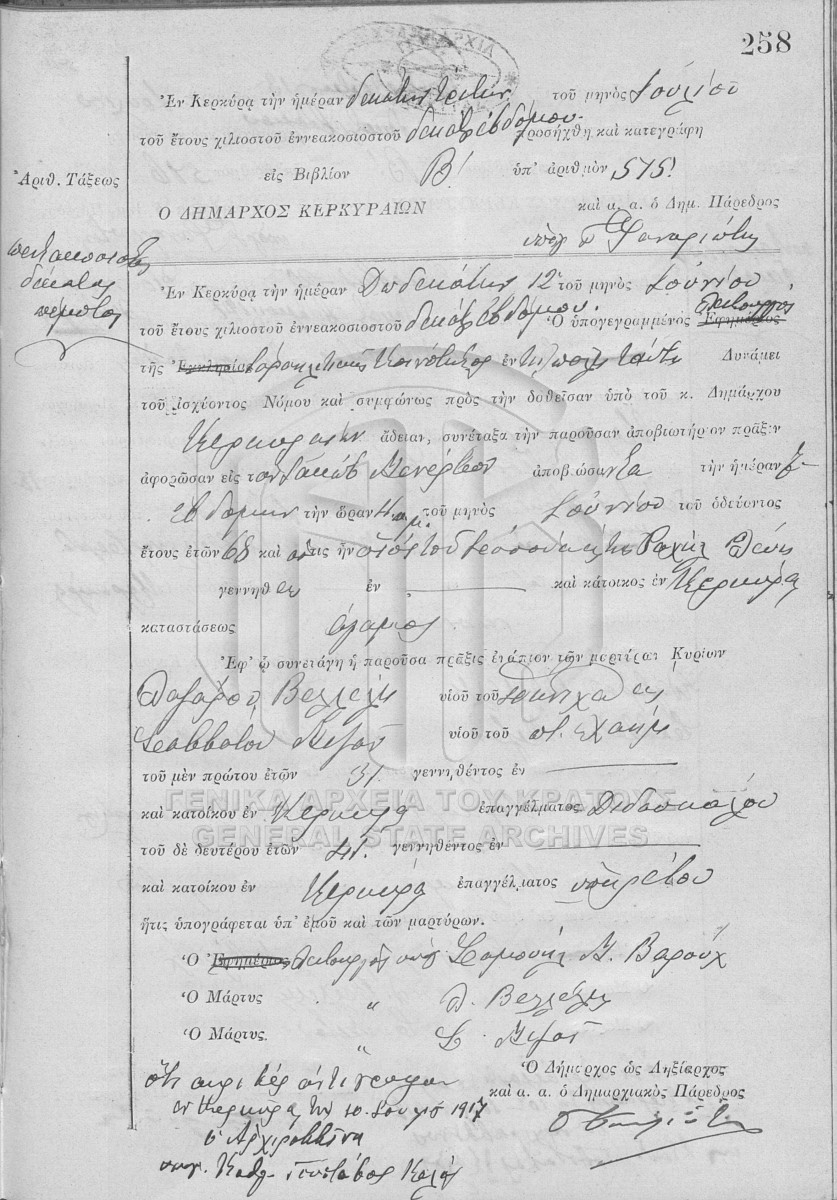 258
Ἐν Κερκύρᾳ τὴν ἡμέραν δεκάτην τρίτην τοῦ μηνὸς Ἰουλίου
τοῦ ἔτους χιλιοστοῦ ἐννεακοσιοστοῦ δεκάτου ἑβδόμου προσήχθη καὶ κατεγράφη
εἰς Βιβλίον Β' ὑπ' ἀριθμὸν 515
Ἀριθ. Τάξεως
Ο ΔΗΜΑΡΧΟΣ ΚΕΡΚΥΡΑΙΩΝ καὶ α. α. ὁ Δημ. Πάρεδρος
πεντακοσιοστὸς
δέκατος
πέμπτος
Ἐν Κερκύρᾳ τὴν ἡμέραν Δωδεκάτην 12 τοῦ μηνὸς Ἰουνίου
τοῦ ἔτους χιλιοστοῦ ἐννεακοσιοστοῦ δεκάτου ἑβδόμου. Ὁ ὑπογεγραμμένος Ἐφημέριος λειτουργὸς
τῆς Ἐκκλησίας Ἰσραηλιτικῆς Κοινότητος ἐν τῇ πόλει ταύτῃ Δυνάμει
τοῦ ἰσχύοντος Νόμου καὶ συμφώνως πρὸς τὴν δοθεῖσαν ὑπὸ τοῦ κ. Δημάρχου
Κερκυραίων ἄδειαν, συνέταξα τὴν παροῦσαν ἀποβιωτήριον πρᾶξιν
ἀφορῶσαν εἰς τὸν Ἰακὼβ ἀποβιώσαντα τὴν ἡμέραν
ἑβδόμην τὴν ὥραν 4 π.μ. τοῦ μηνὸς Ἰουνίου τοῦ ὁδεύοντος
ἔτους ἐτῶν 68 καὶ ὅστις ἦν υἱὸς τοῦ καὶ τῆς Ραχὴλ
γεννηθεὶς ἐν καὶ κάτοικος ἐν Κερκύρᾳ
καταστάσεως ἄγαμος
Ἐφ' ᾧ συνετάγη ἡ παροῦσα πρᾶξις ἐνώπιον τῶν μαρτύρων Κυρίων
Λαζάρου Βελλέλη υἱοῦ τοῦ
Σαββατοῦ υἱοῦ τοῦ
τοῦ μὲν πρώτου ἐτῶν 31 γεννηθέντος ἐν
ΓΕΝΙΚΑ ΑΡΧΕΙΑ ΤΟΥ ΚΡΑΤΟΥΣ
καὶ κατοίκου ἐν Κερκύρᾳ ἐπαγγέλματος Διδασκάλου
GENERAL STATE ARCHIVES
τοῦ δὲ δευτέρου ἐτῶν 41 γεννηθέντος ἐν
καὶ κατοίκου ἐν Κερκύρᾳ ἐπαγγέλματος ὑπηρέτου
ἥτις ὑπογράφεται ὑπ' ἐμοῦ καὶ τῶν μαρτύρων.
Ὁ Ἐφημέριος λειτουργὸς υπογ Σαμουὴλ Μ. Βαροὺχ
Ὁ Μάρτυς " Λ. Βελλέλης
Ὁ Μάρτυς " Σ.
Ὁ Δήμαρχος ὡς Ληξίαρχος
καὶ α. α. ὁ Δημαρχιακὸς Πάρεδρος
Ὅτι ἀκριβὲς ἀντίγραφον
ἐν Κερκύρᾳ τῇ 10 Ἰουλίου 1917
ὁ Ἀρχιραββῖνος